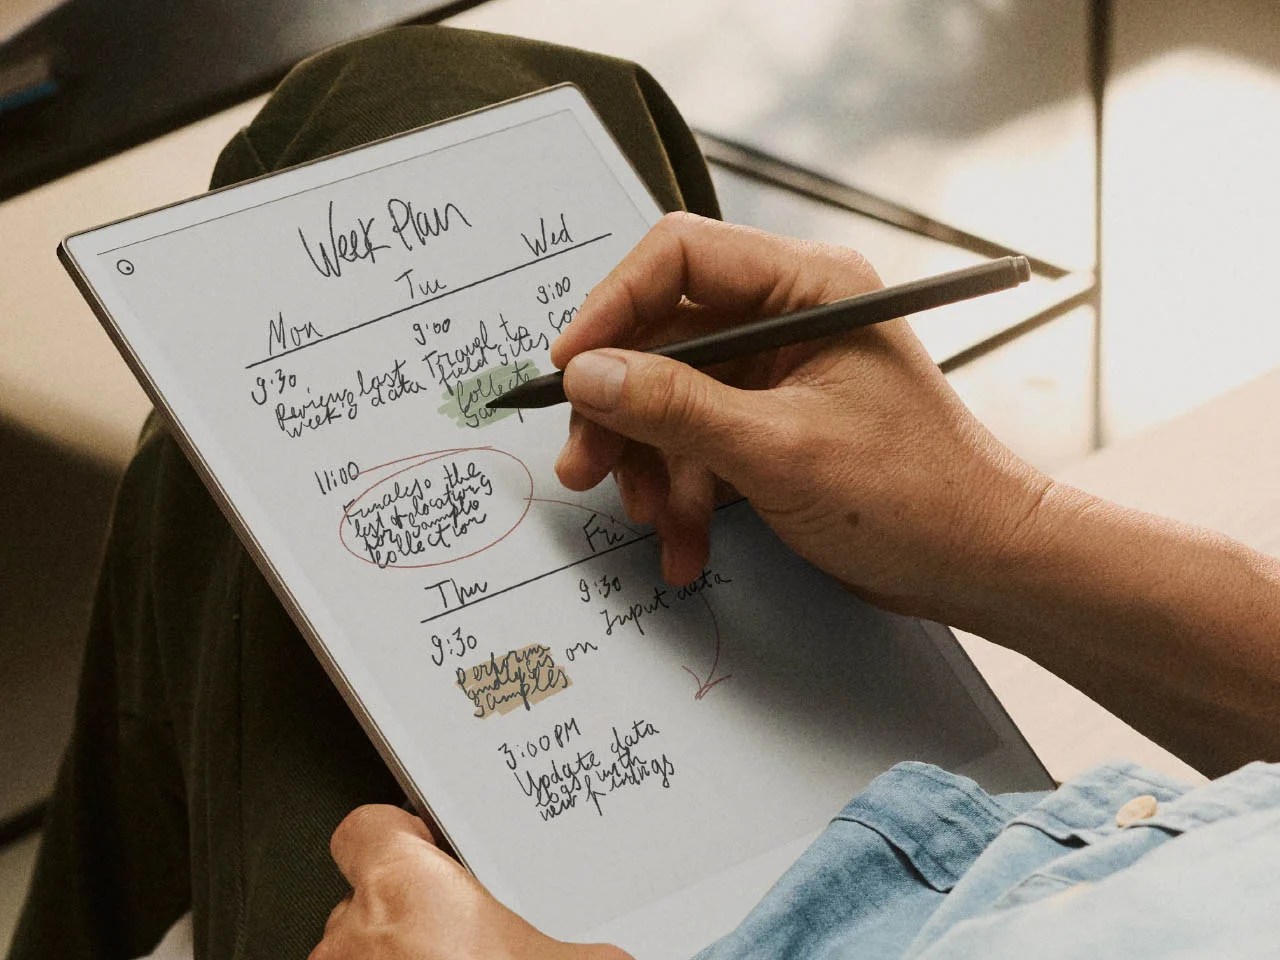 Week Plan
Mon
9:30
Review last
week's data
11:00
Finalise the
list of locations
for sample
collection
Tue
9:00
Travel to
field sites
Collect
Wed
9:00
Thu
9:30
Perform
analysis on
samples
3:00PM
Update data
logs with
new findings
Fri
9:30
Input data